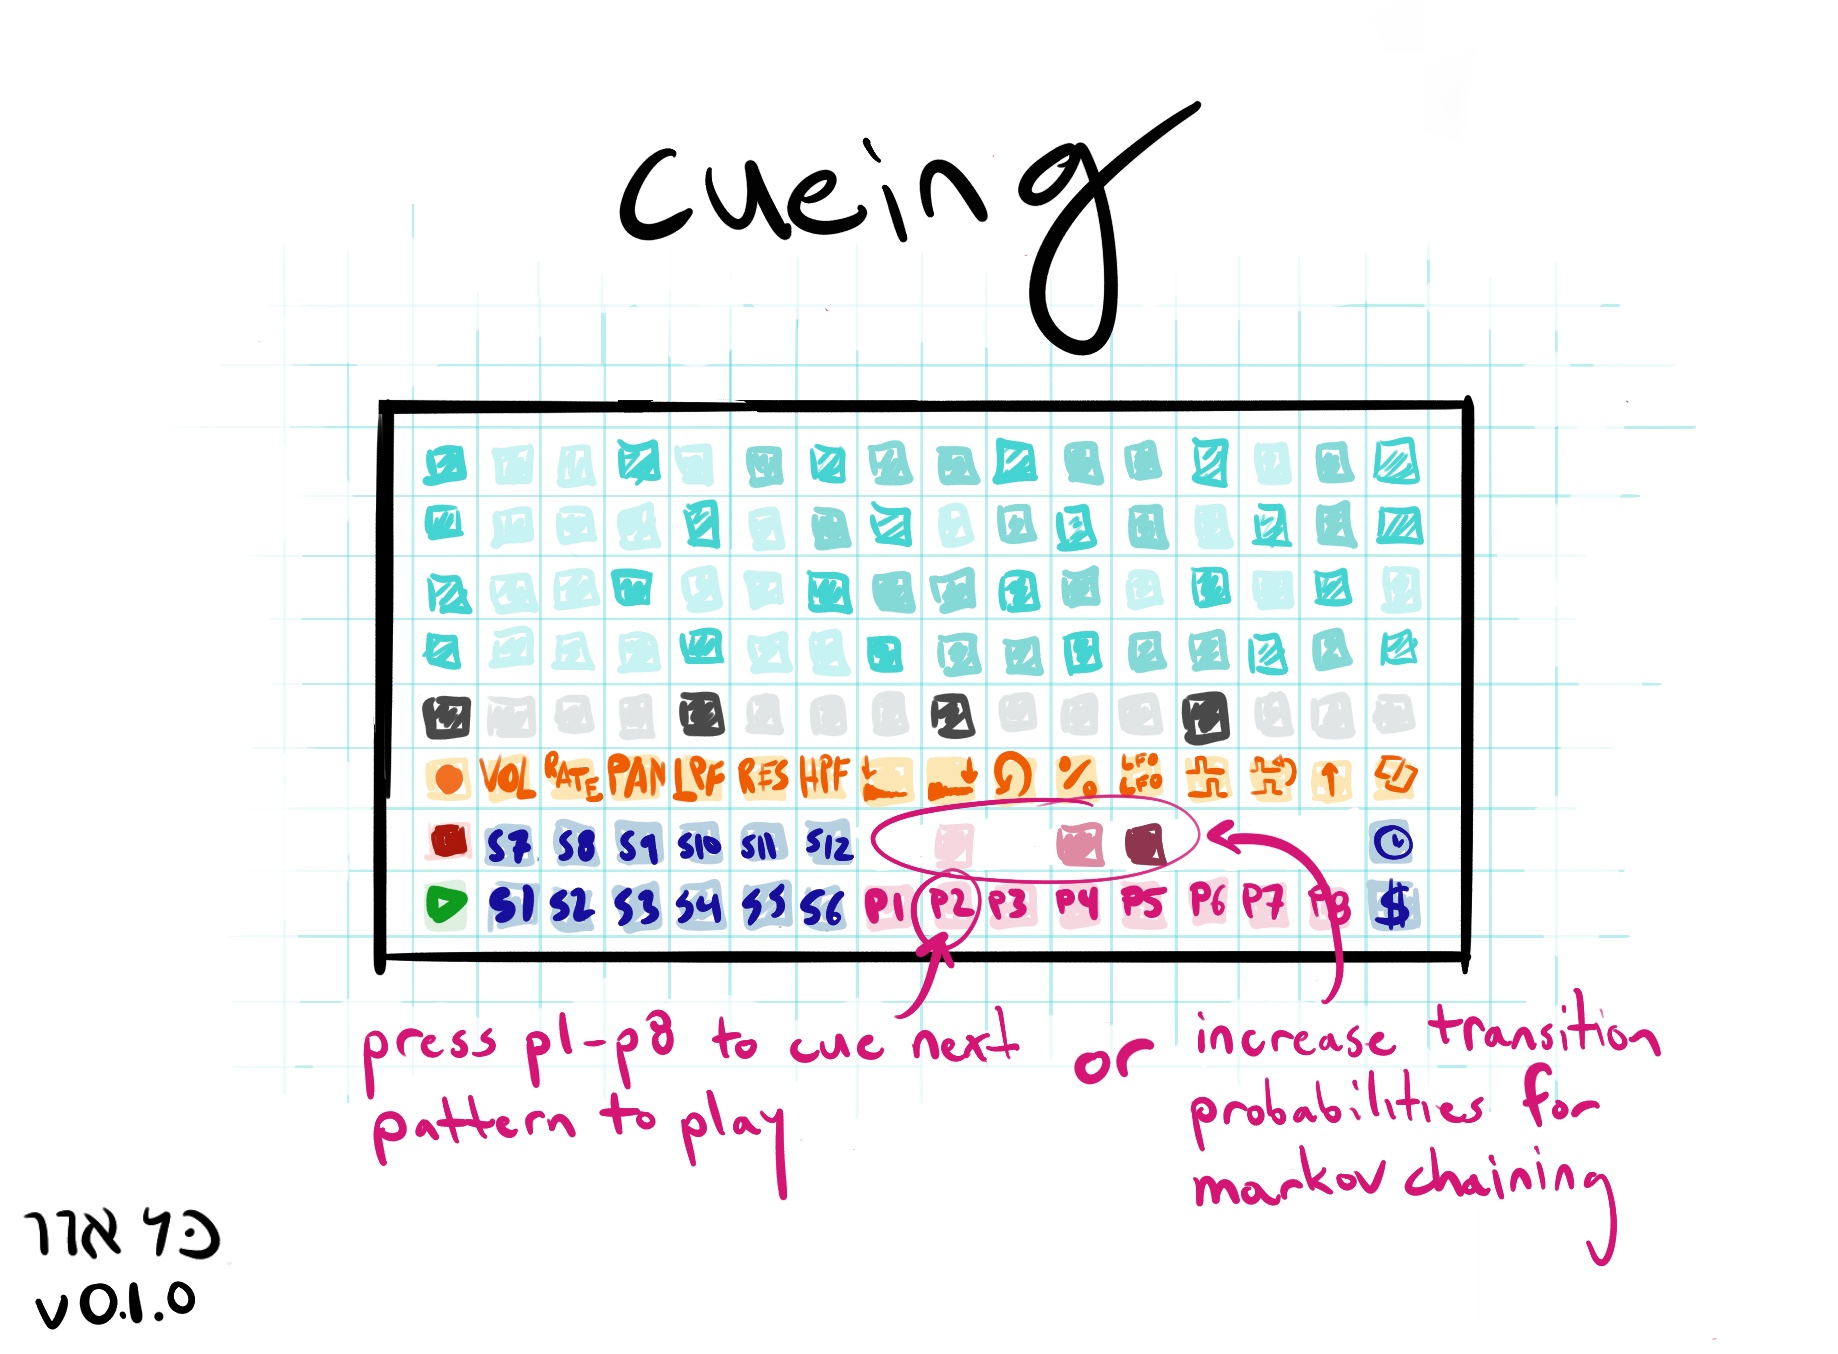 cueing
VOL RATE PAN LPF RES HPF % LFO LFO
S7 S8 S9 S10 S11 S12
S1 S2 S3 S4 S5 S6 P1 P2 P3 P4 P5 P6 P7 P8 $
press p1-p8 to cue next
pattern to play
or
increase transition
probabilities for
markov chaining
כּל אור
v0.1.0